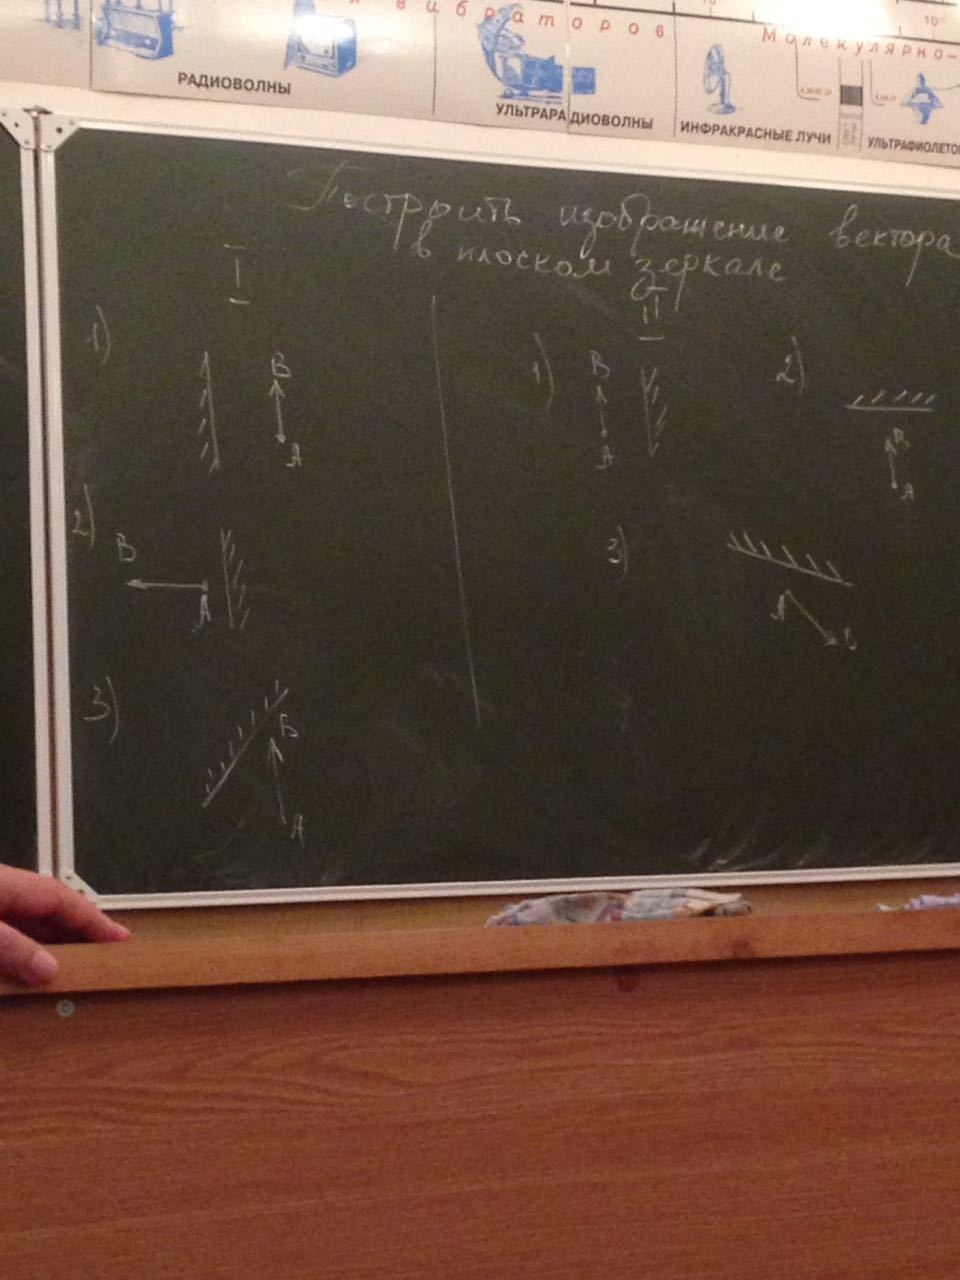 вибраторов
10
Молекулярно-
РАДИОВОЛНЫ
УЛЬТРАРАДИОВОЛНЫ
ИНФРАКРАСНЫЕ ЛУЧИ
УЛЬТРАФИОЛЕТО
Построить изображение вектора
в плоском зеркале
I
1)
B
A
2)
B
A
3)
Б
A
II
1)
B
A
2)
B
A
3)
A
B